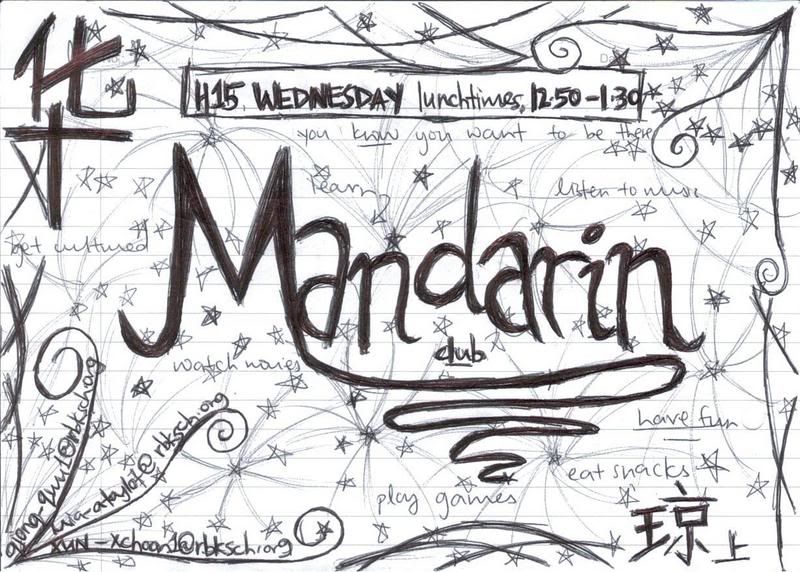 华
H15 WEDNESDAY lunchtimes, 12:50-1:30
you know you want to be there
learn
listen to music
get cultured
Mandarin
club
watch movies
have fun
eat snacks
play games
xun-xchoon1@rbksch.org
琼上